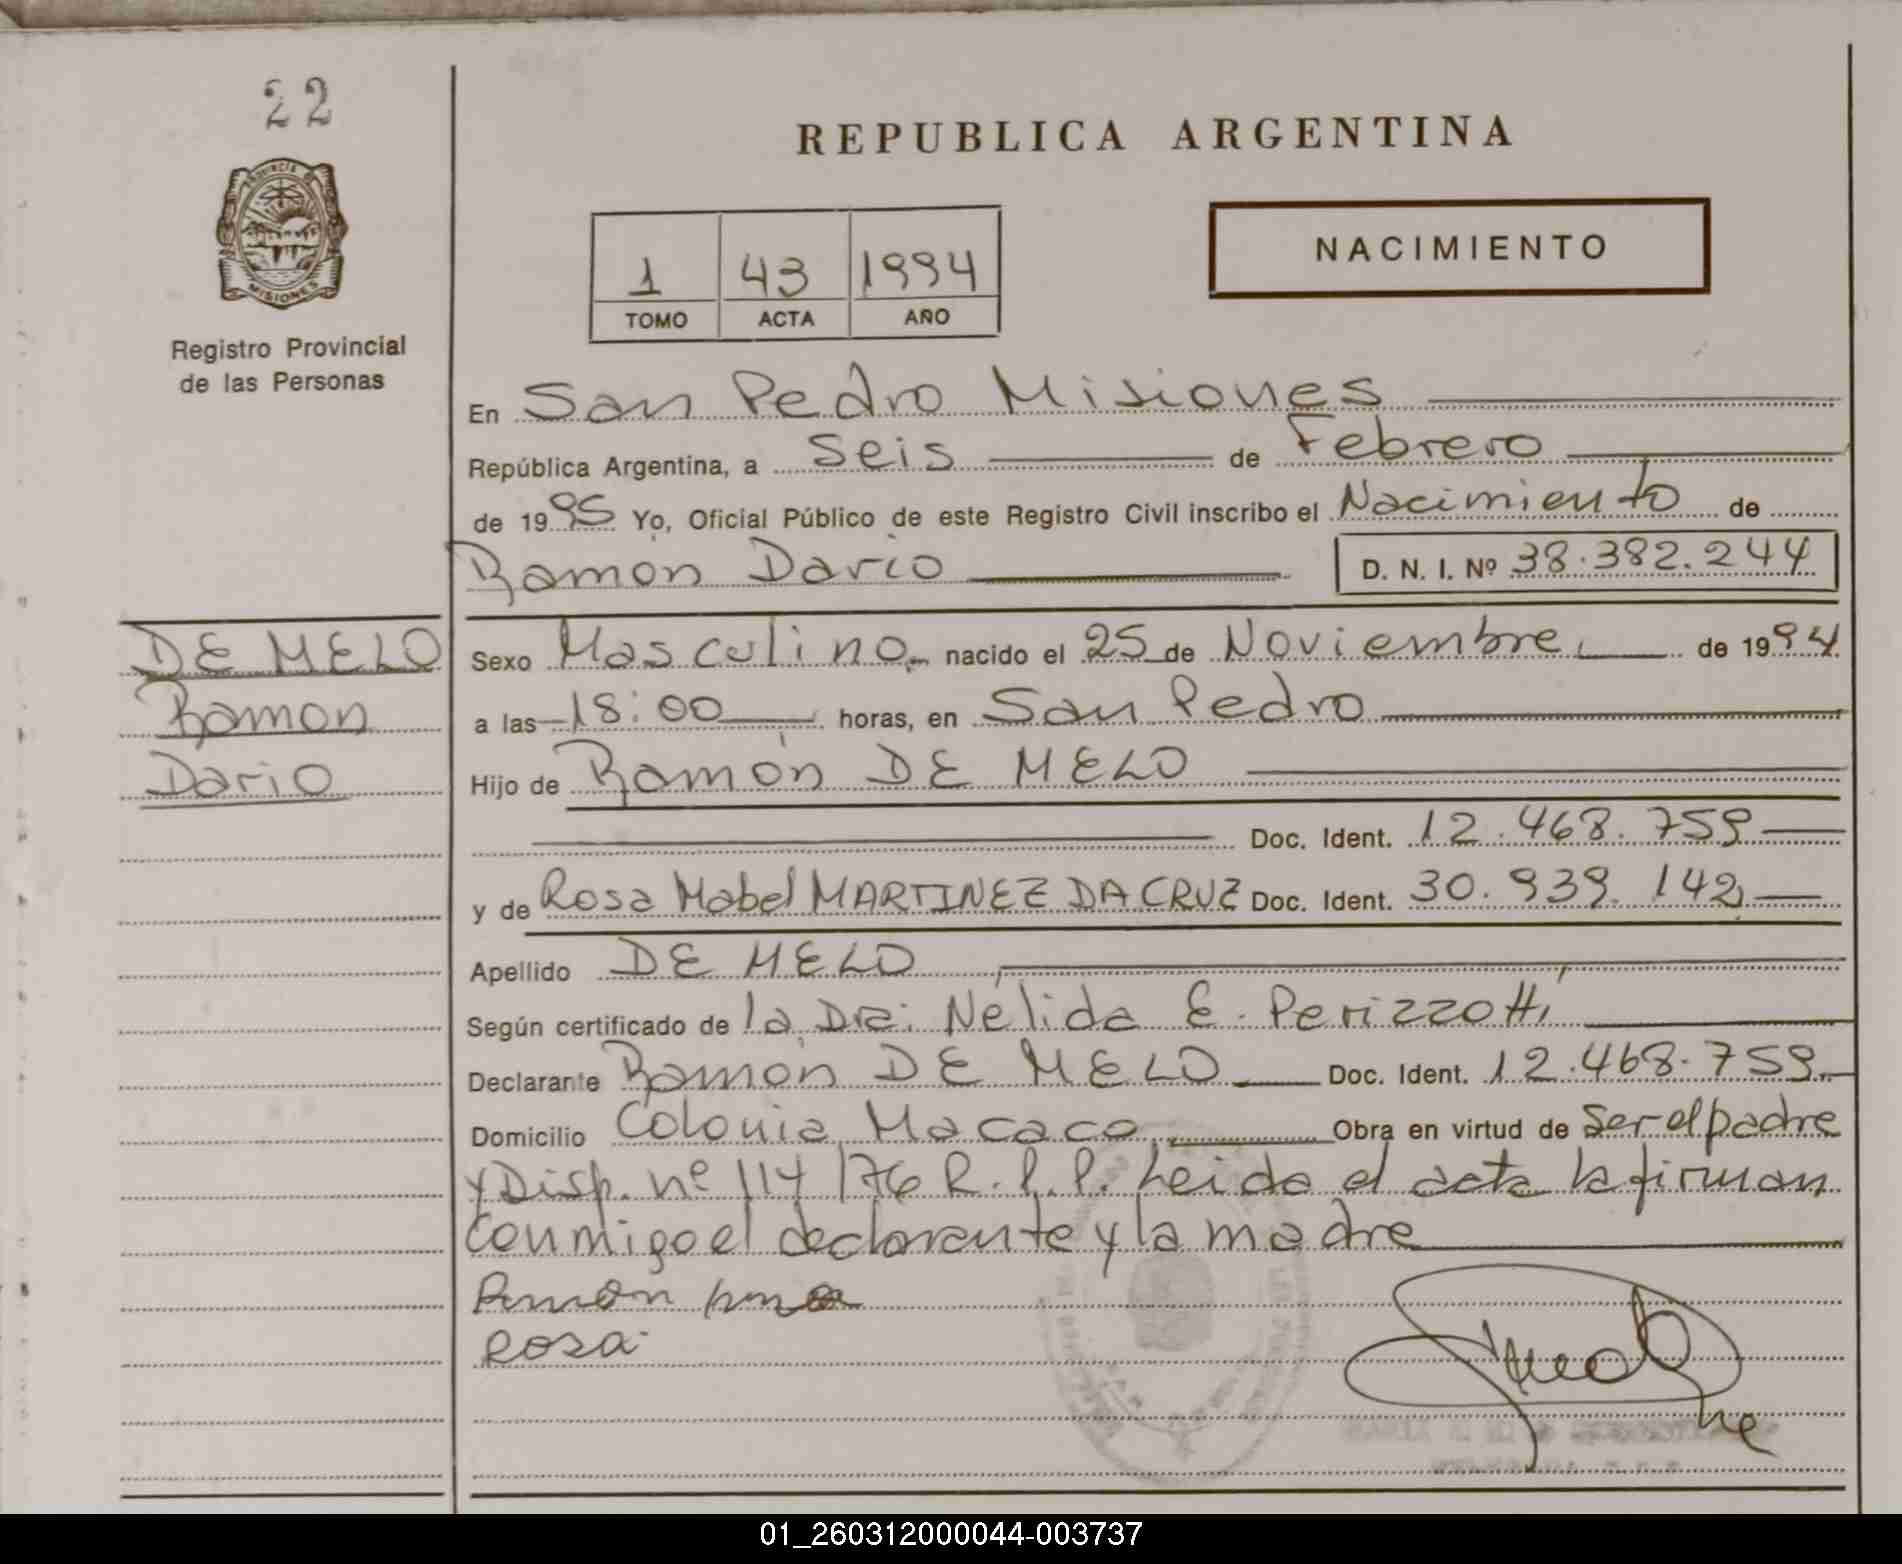 22
PROVINCIA DE
MISIONES
Registro Provincial
de las Personas
REPUBLICA ARGENTINA
1 43 1994
TOMO ACTA AÑO
NACIMIENTO
En San Pedro Misiones
República Argentina, a Seis de Febrero
de 1995 Yo, Oficial Público de este Registro Civil inscribo el Nacimiento de
Ramón Dario D. N. I. Nº 38.382.244
DE MELO
Ramon
Dario
Sexo Masculino nacido el 25 de Noviembre de 1994
a las 18:00 horas, en San Pedro
Hijo de Ramón DE MELO
Doc. Ident. 12.468.759
y de Rosa Mabel MARTINEZ DA CRUZ Doc. Ident. 30.939.142
Apellido DE MELO
Según certificado de la Dra. Nélida E. Perizzotti
Declarante Ramón DE MELO Doc. Ident. 12.468.759
Domicilio Colonia Macaco Obra en virtud de Ser el padre
y Disp. nº 114/76 R.P.P. Leida el acta la firman
conmigo el declarante y la madre
Ramón
Rosa
01_260312000044-003737